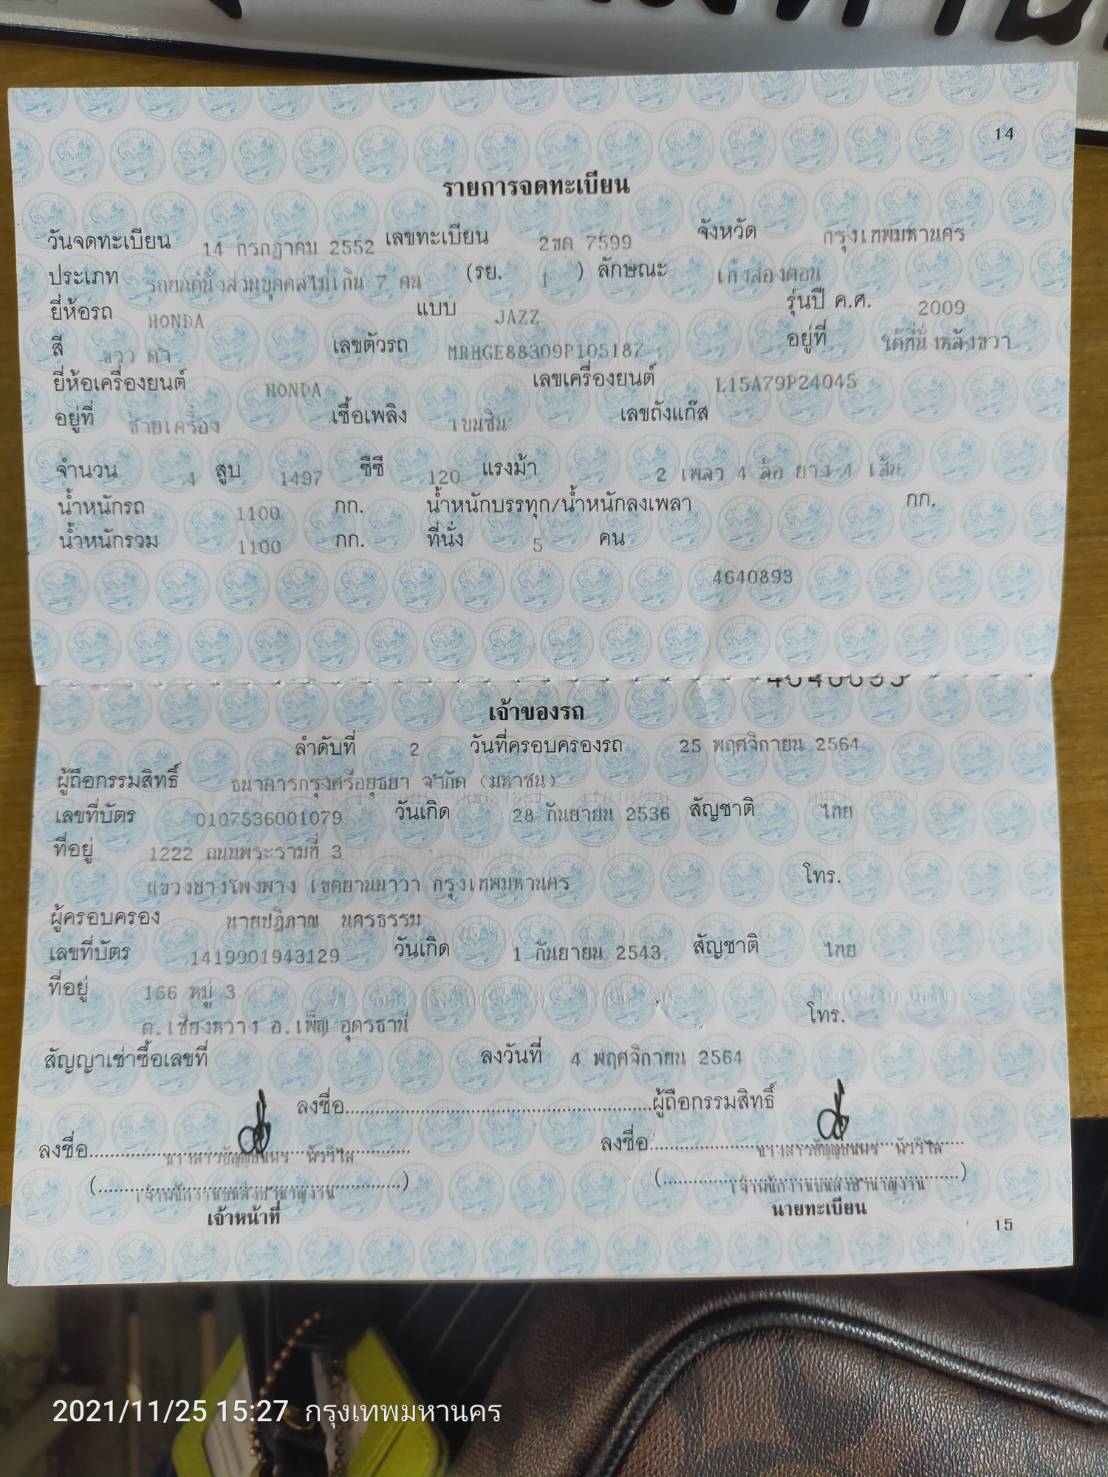 14
รายการจดทะเบียน
วันจดทะเบียน 14 กรกฎาคม 2552 เลขทะเบียน 2ฃค 7599 จังหวัด กรุงเทพมหานคร
ประเภท รถยนต์นั่งส่วนบุคคลไม่เกิน 7 คน (รย. 1 ) ลักษณะ เก๋งสองตอน
ยี่ห้อรถ HONDA แบบ JAZZ รุ่นปี ค.ศ. 2009
สี ขาว ดำ เลขตัวรถ MRHGE88309P105187 อยู่ที่ ใต้ที่นั่งหลังขวา
ยี่ห้อเครื่องยนต์ HONDA เลขเครื่องยนต์ L15A79P24045
อยู่ที่ ซ้ายเครื่อง เชื้อเพลิง เบนซิน เลขถังแก๊ส
จำนวน 4 สูบ 1497 ซีซี 120 แรงม้า 2 เพลา 4 ล้อ ยาง 4 เส้น
น้ำหนักรถ 1100 กก. น้ำหนักบรรทุก/น้ำหนักลงเพลา กก.
น้ำหนักรวม 1100 กก. ที่นั่ง 5 คน
4640893
เจ้าของรถ
ลำดับที่ 2 วันที่ครอบครองรถ 25 พฤศจิกายน 2564
ผู้ถือกรรมสิทธิ์ ธนาคารกรุงศรีอยุธยา จำกัด (มหาชน)
เลขที่บัตร 0107536001079 วันเกิด 28 กันยายน 2536 สัญชาติ ไทย
ที่อยู่ 1222 ถนนพระรามที่ 3
แขวงบางโพงพาง เขตยานนาวา กรุงเทพมหานคร โทร.
ผู้ครอบครอง นายปฏิภาณ นครธรรม
เลขที่บัตร 1419901943129 วันเกิด 1 กันยายน 2543 สัญชาติ ไทย
ที่อยู่ 166 หมู่ 3
ต.เชียงหวาง อ.เพ็ญ อุดรธานี โทร.
สัญญาเช่าซื้อเลขที่ ลงวันที่ 4 พฤศจิกายน 2564
ลงชื่อ ผู้ถือกรรมสิทธิ์
ลงชื่อ นางสาว ลงชื่อ นางสาว
(เจ้าพนักงานขนส่งชำนาญงาน) (เจ้าพนักงานขนส่งชำนาญงาน)
เจ้าหน้าที่ นายทะเบียน
15
2021/11/25 15:27 กรุงเทพมหานคร